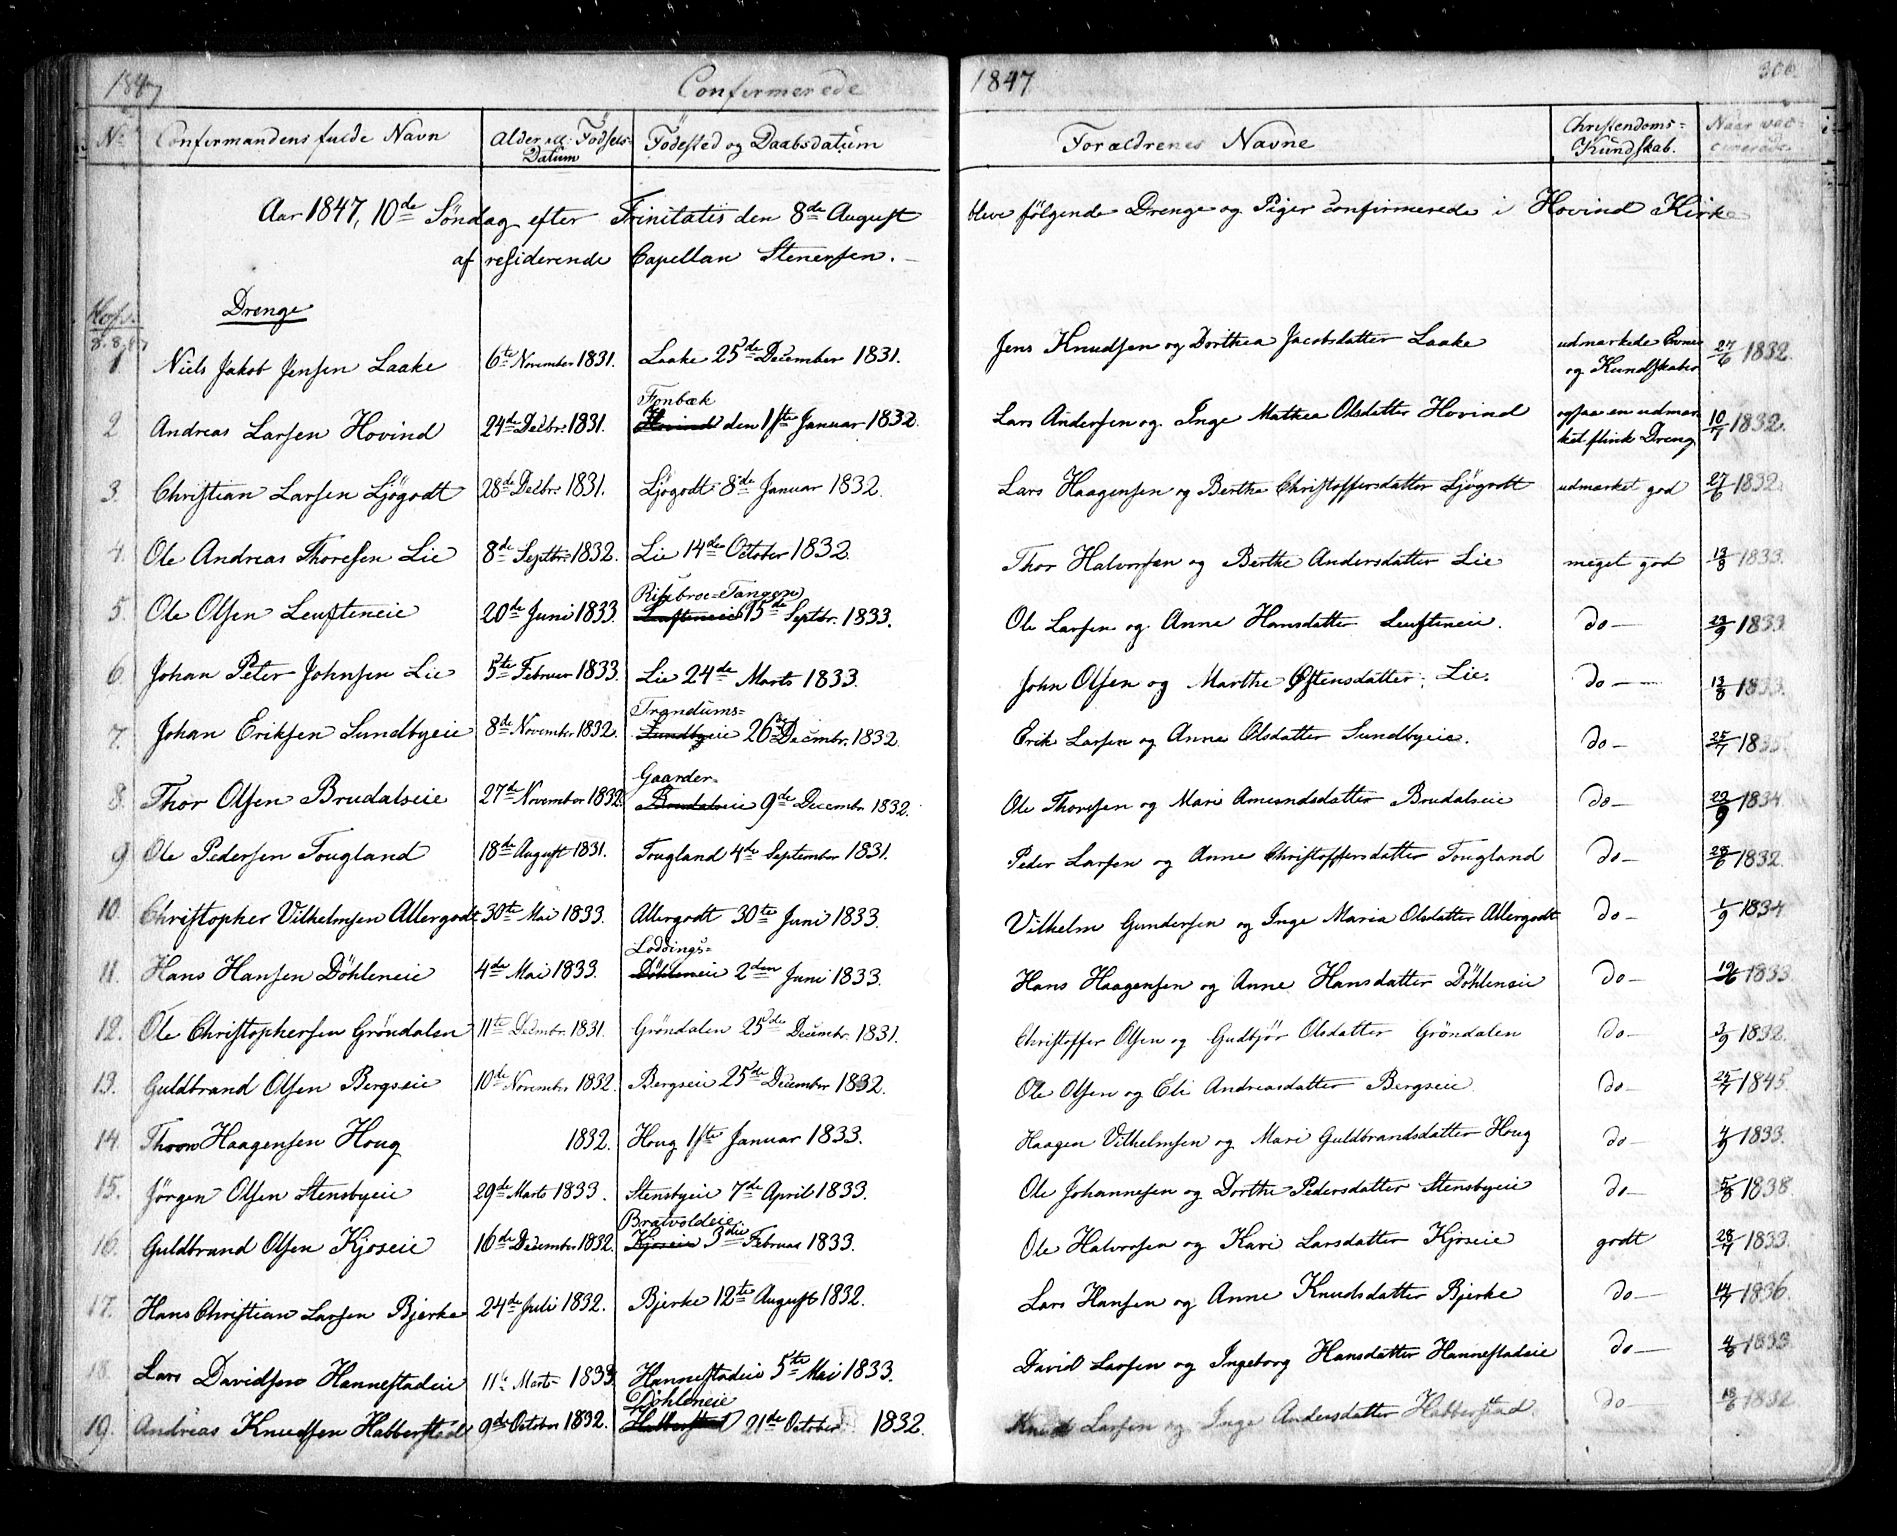 1847 Confermerede 1847 306.
No Confermandens fulde Navn Alder ell: Födsels- Datum Födested og Daabsdatum Forældrenes Navne Christendoms= Kundskab. Naar vac- cinerede.
Aar 1847, 10de Söndag efter Trinitatis den 8de August bleve fölgende Drenge og Piger confirmerede i Hovind Kirke
af residerende Capellan Stenersen. -
Drenge
1 Niels Jakob Jensen Laake 6te November 1831. Laake 25de December 1831. Jens Knudsen og Dorthea Jacobsdatter Laake udmarkede Evner og Kundskaber 27/6 1832.
Fonbæk
2 Andreas Larsen Hovind 24de Decbr: 1831. Hovind den 1ste Januar 1832. Lars Andersen og Inge Mathea Olsdatter Hovind ogsaa en udmar ket flink Dreng 10/7 1832.
3. Christian Larsen Ljögodt 28de Decbr: 1831. Ljögodt 8de Januar 1832. Lars Haagensen og Berthe Christoffersdatter Ljögodt udmarket god 27/6 1832.
4. Ole Andreas Thoresen Lie 8de Septbr: 1832. Lie 14de October 1832. Thor Halvorsen og Berthe Andersdatter Lie meget god 13/8 1833.
Risebroe=Tangen
5. Ole Olsen Leusteneie 20de Juni 1833. Leusteneie 15de Septbr. 1833. Ole Larsen og Anne Hansdatter Leusteneie. do— 23/9 1833.
6. Johan Peter Johnsen Lie 5te Februar 1833. Lie 24de Marts 1833. John Olsen og Marthe Østensdatter Lie. do— 13/8 1833.
Trandums=
7. Johan Eriksen Sundbyeie 8de November 1832. Sundbyeie 26de Decmbr. 1832. Erik Larsen og Anne Olsdatter Sundbyeie. do— 25/7 1835.
Gaarder=
8. Thor Olsen Brudalseie 27de November 1832. Brudalseie 9de Decembr 1832. Ole Thoresen og Mari Amundsdatter Brudalseie do— 22/9 1834.
9 Ole Pedersen Tougland 18de August 1831. Tougland 4de September 1831. Peder Larsen og Anne Christoffersdatter Tougland do— 28/6 1832.
10. Christopher Vilhelmsen Allergodt 30te Mai 1833. Allergodt 30te Juni 1833. Vilhelm Gundersen og Inge Maria Olsdatter Allergodt do— 1/9 1834
Loddings=
11. Hans Hansen Döhleneie 4de Mai 1833. Döhleneie 2den Juni 1833. Hans Haagensen og Anne Hansdatter Döhleneie do— 19/6 1833
12. Ole Christophersen Gröndalen 11te Decmbr. 1831. Gröndalen 25de Decmbr. 1831. Christoffer Olsen og Gudbjör Olsdatter Gröndalen do— 3/9 1832.
13. Guldbrand Olsen Bergseie 10de November 1832. Bergseie 25de December 1832. Ole Olsen og Eli Andreasdatter Bergseie do— 25/7 1845.
14 Haagensen Houg 1832. Houg 1ste Januar 1833. Haagen Vilhelmsen og Mari Guldbrandsdatter Houg do— 4/9 1833.
15. Jörgen Olsen Stensbyeie 29de Marts 1833. Stensbyeie 7de April 1833. Ole Johannesen og Dorthe Pedersdatter Stensbyeie do— 5/8 1838.
Bratvoldeie
16. Guldbrand Olsen Kjoseie 16de December 1832. Kjoseie 3die Februar 1833. Ole Halvorsen og Kari Larsdatter Kjoseie godt 28/7 1833.
17. Hans Christian Larsen Bjerke 24de Juli 1832. Bjerke 12te August 1832. Lars Hansen og Anne Knudsdatter Bjerke do— 14/7 1836.
18. Lars Davidsen Hannestadeie 11te Marts 1833 Hannestadeie 5te Mai 1833. David Larsen og Ingeborg Hansdatter Hannestadeie do— 4/8 1833.
Döhleneie
19. Andreas Knudsen Habberstad 9de October 1832. Habberstad 21de October 1832. Knud Larsen og Inge Andersdatter Habberstad. do— 13/6 1832